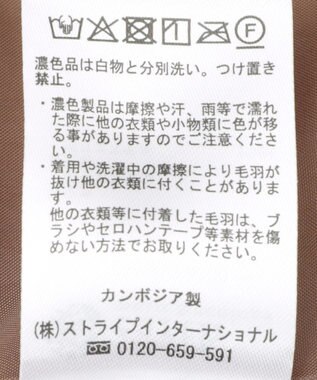 濃色品は白物と分別洗い。つけ置き
禁止。
・濃色製品は摩擦や汗、雨等で濡れ
た際に他の衣類や小物類に色が移
る事がありますのでご注意くださ
い。
・着用や洗濯中の摩擦により毛羽が
抜け他の衣類に付くことがありま
す。
他の衣類等に付着した毛羽は、ブ
ラシやセロハンテープ等素材を傷
めない方法でお取りください。
カンボジア製
(株)ストライプインターナショナル
0120-659-591